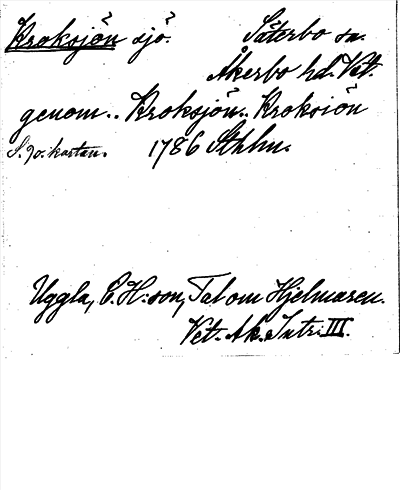 Kroksjön sjö. Säterbo sn.
Åkerbo hd. Vstm.
genom.. Kroksjön.. Kroksiön
S. 90. kartan. 1786 Sthlm.
Uggla, C. H:son, Tal om Hjelmaren.
Vet. Ak. Intr. III.